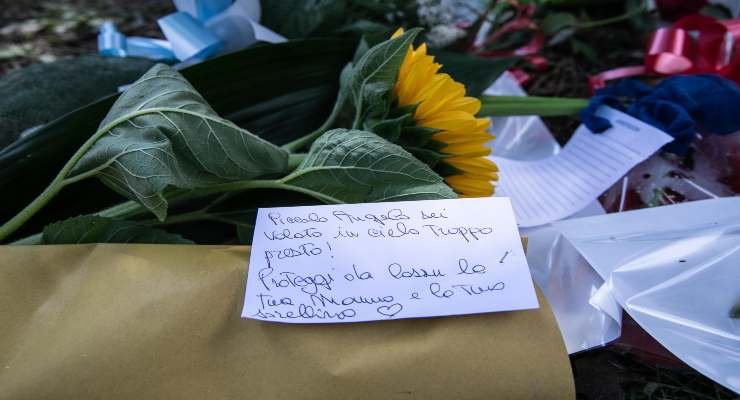 Piccolo Angelo sei
volato in cielo troppo
presto!
Proteggi da lassù la
tua Mamma e la tua
sorellina